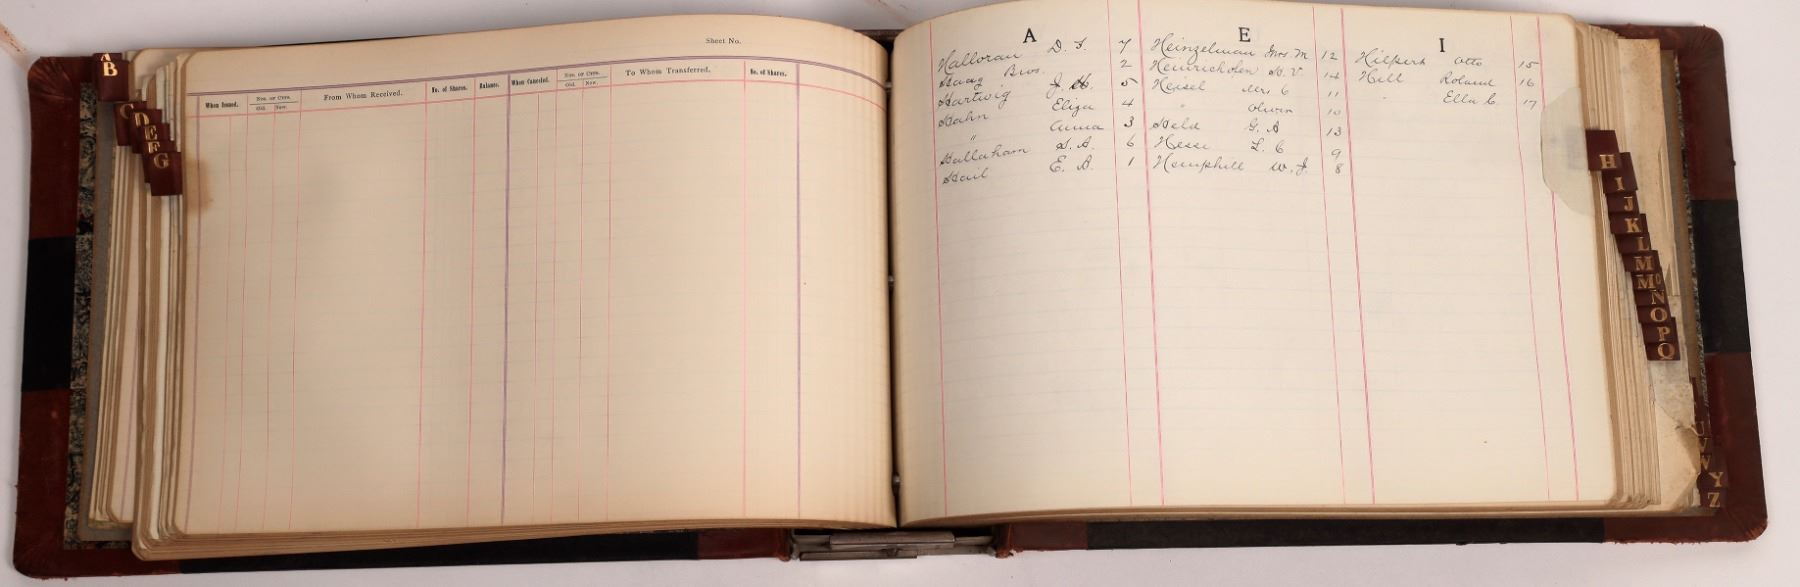 Sheet No.
When Issued. Nos. of Cers. Old. New. From Whom Received. No. of Shares. Balance. When Canceled. Nos. of Cers. Old. New. To Whom Transferred. No. of Shares.
A
B
C
D
E
F
G
A
Halloran D. F. 7
Haag Bros. 2
Hartwig J. H. 5
Hahn Eliza 4
" Anna 3
Hallaham S. A. 6
Hail E. A. 1
E
Heinzelman Mrs. M 12
Heinrichofen W. V 14
Heisel Mr. C 11
" Oliver 10
Held G. A 13
Hesse L. C 9
Hemphill W. J. 8
I
Hilpert Otto 15
Hill Roland 16
" Ella C. 17
H
I
J
K
L
M
Mc
N
O
P
Q
U
V
W
Y
Z